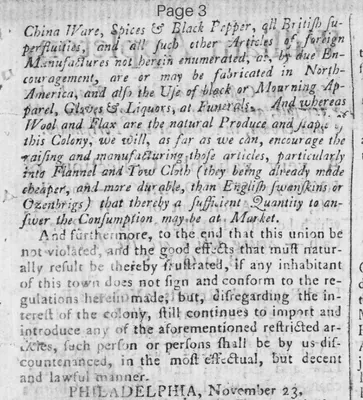 Page 3
China Ware, Spices & Black Pepper, all British su-
perfluities, and all such other Articles of foreign
Manufactures not herein enumerated, as, by due En-
couragement, are or may be fabricated in North-
America, and also the Use of black or Mourning Ap-
parel, Gloves & Liquors, at Funerals.— And whereas
Wool and Flax are the natural Produce and staple
this Colony, we will, as far as we can, encourage the
raising and manufacturing those articles, particularly
into Flannel and Tow Cloth (they being already made
cheaper, and more durable, than English swanskins or
Ozenbrigs) that thereby a sufficient Quantity to an-
swer the Consumption may be at Market.
And furthermore, to the end that this union be
not violated, and the good effects that must natur-
ally result be thereby frustrated, if any inhabitant
of this town does not sign and conform to the re-
gulations herein made, but, disregarding the in-
terest of the colony, still continues to import and
introduce any of the aforementioned restricted ar-
ticles, such person or persons shall be by us dis-
countenanced, in the most effectual, but decent
and lawful manner.
PHILADELPHIA, November 23,